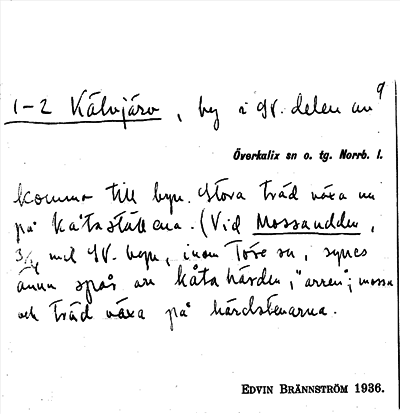 9
1-2 Kälvjärv, by i NV. delen av
Överkalix sn o. tg. Norrb. l.
komma till byn. Stora träd växa nu
på kåtaställena. (Vid Mossaudden,
3/4 mil NV. byn, inom Töre sn, synes
ännu spår av kåtahärden, "arren"; mossa
och träd växa på härdstenarna.
EDVIN BRÄNNSTRÖM 1936.